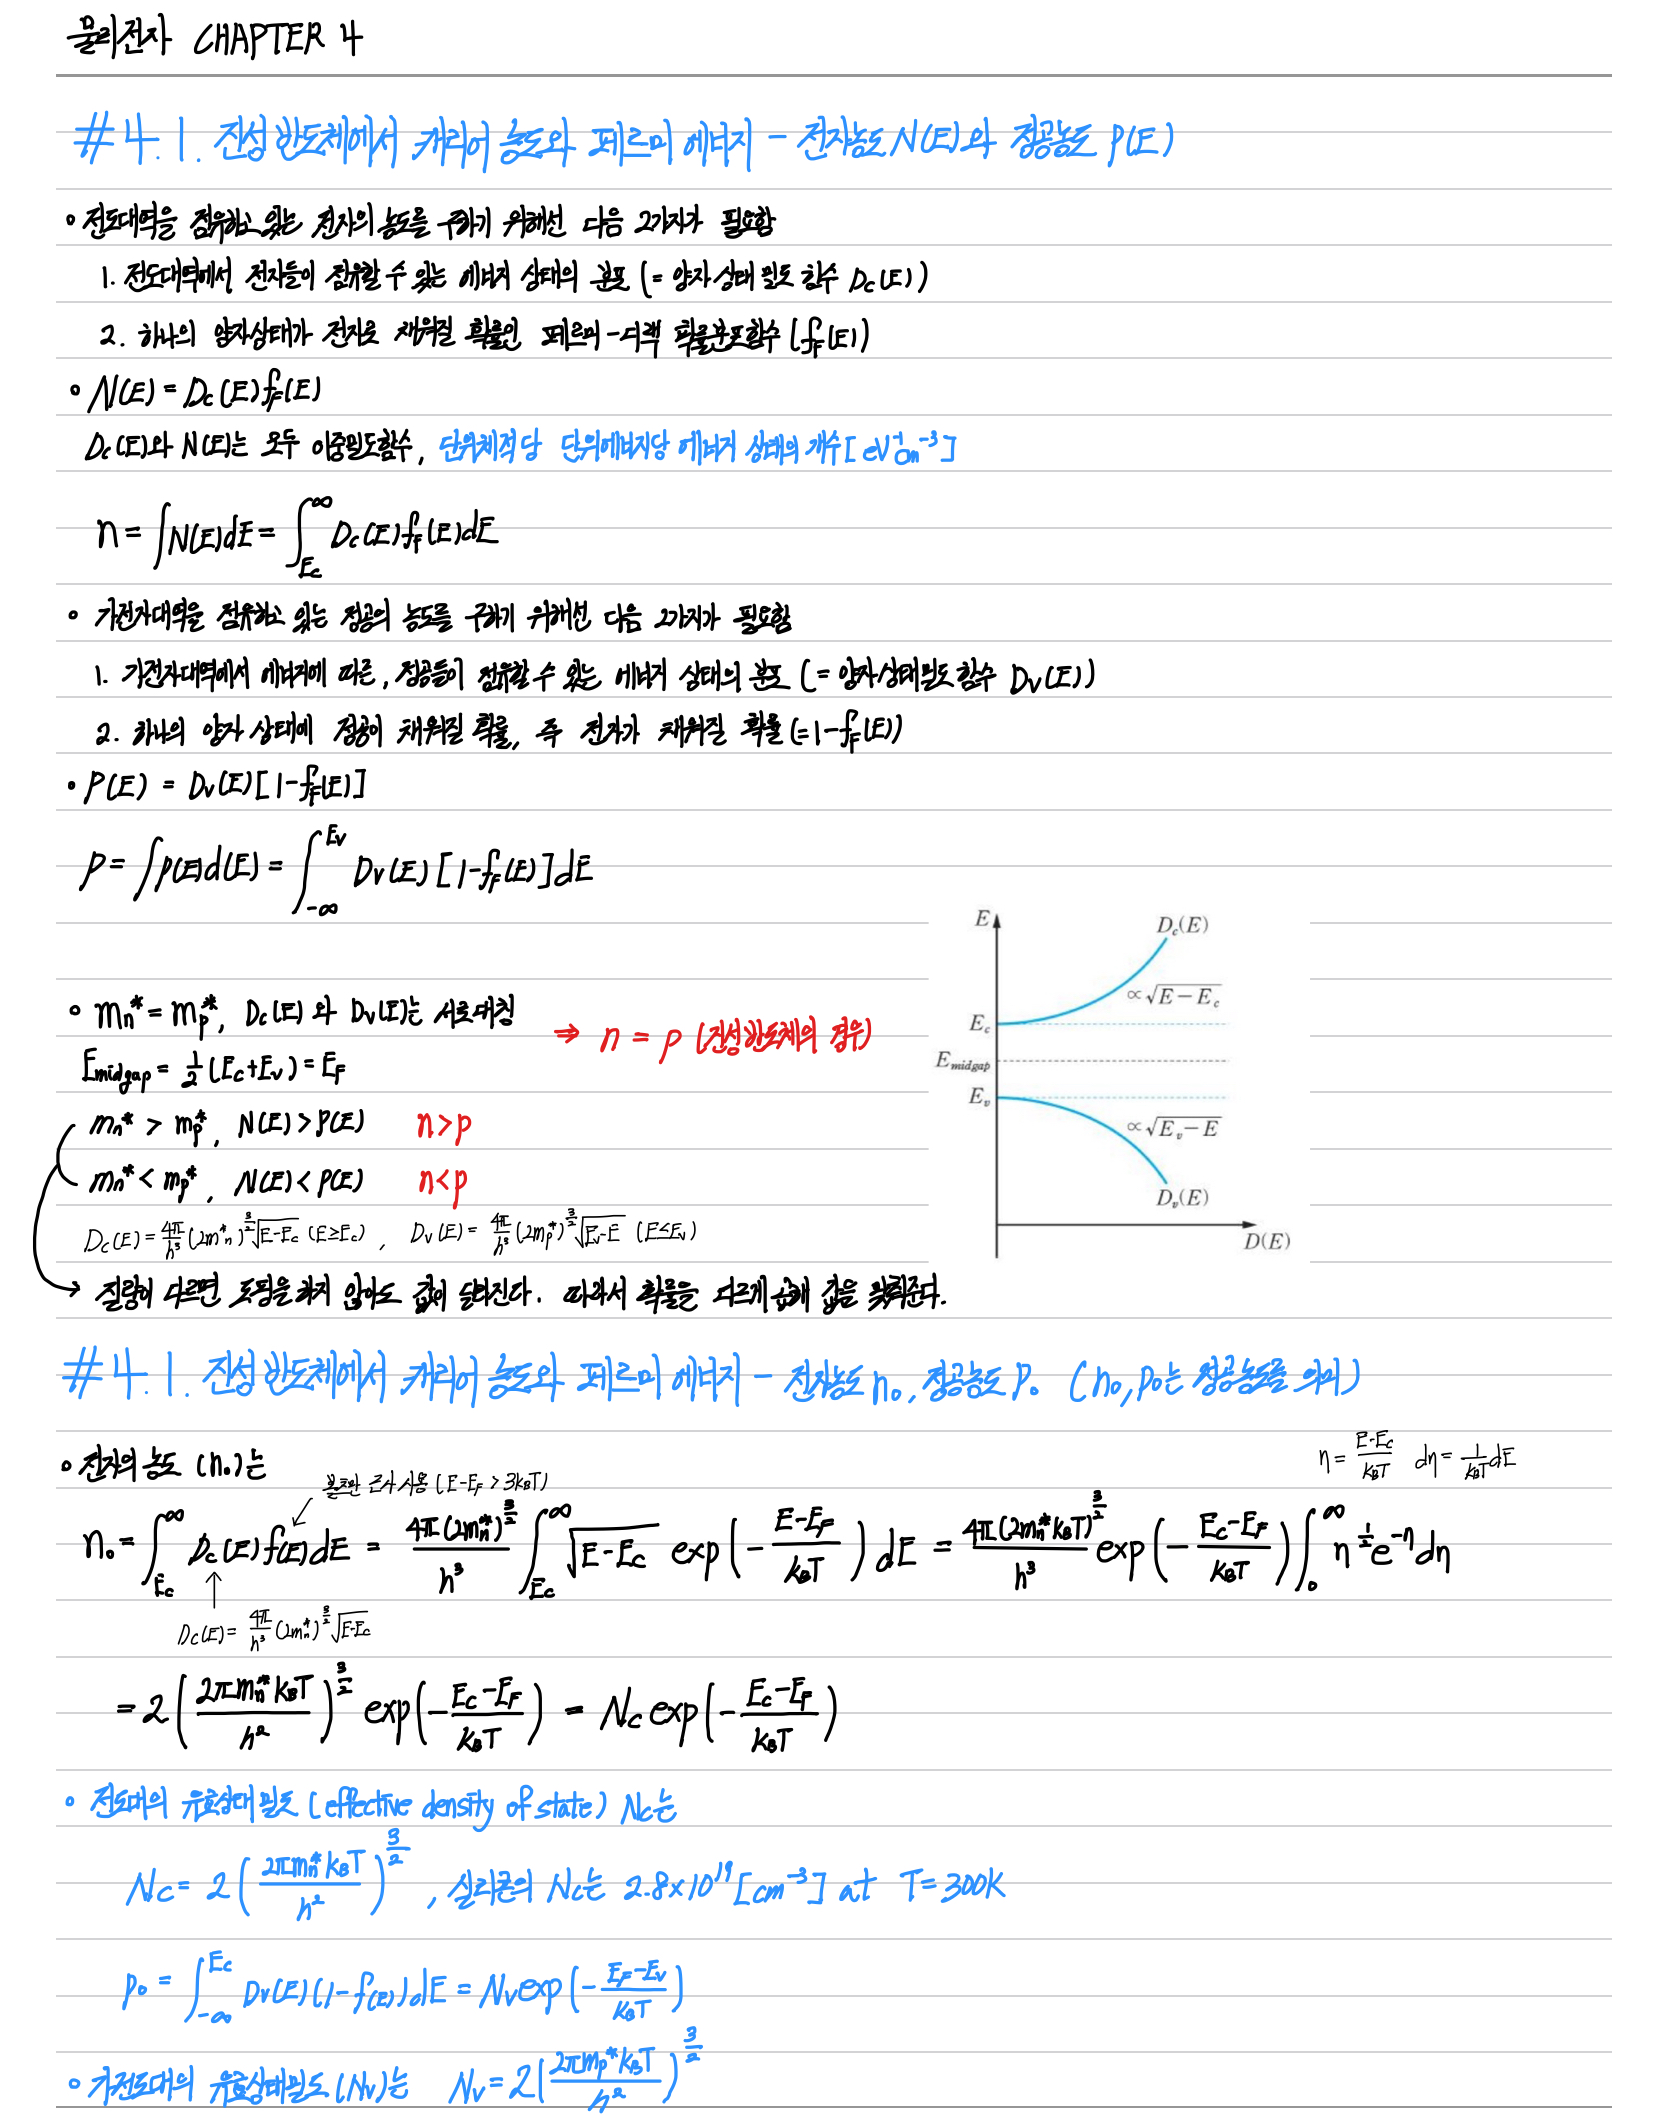 물리전자 CHAPTER 4
#4.1. 진성 반도체에서 캐리어 농도와 페르미 에너지 - 전자농도 N(E)와 정공농도 p(E)
∘ 전도대역을 점유하고 있는 전자의 농도를 구하기 위해선 다음 2가지가 필요함
1. 전도대역에서 전자들이 점유할 수 있는 에너지 상태의 분포 (= 양자상태 밀도 함수 Dc(E))
2. 하나의 양자상태가 전자로 채워질 확률인 페르미-디랙 확률분포함수 (f_F(E))
∘ N(E) = Dc(E)f_F(E)
Dc(E)와 N(E)는 모두 이중밀도함수, 단위체적당 단위에너지당 에너지 상태의 개수 [eV⁻¹cm⁻³]
n = ∫N(E)dE = ∫_{Ec}^{∞} Dc(E)f_F(E)dE
∘ 가전자대역을 점유하고 있는 정공의 농도를 구하기 위해선 다음 2가지가 필요함
1. 가전자대역에서 에너지에 따른, 정공들이 점유할 수 있는 에너지 상태의 분포 (= 양자상태밀도 함수 Dv(E))
2. 하나의 양자 상태에 정공이 채워질 확률, 즉 전자가 채워질 확률 (=1-f_F(E))
∘ P(E) = Dv(E)[1-f_F(E)]
p = ∫p(E)d(E) = ∫_{-∞}^{Ev} Dv(E)[1-f_F(E)]dE
E
Dc(E)
∝√(E-Ec)
Ec
Emidgap
Ev
∝√(Ev-E)
Dv(E)
D(E)
∘ mn* = mp*, Dc(E)와 Dv(E)는 서로대칭 ⇒ n = p (진성반도체의 경우)
Emidgap = 1/2 (Ec+Ev) = E_F
mn* > mp*, N(E) > P(E) n>p
mn* < mp*, N(E) < P(E) n<p
Dc(E) = 4π/h³ (2mn*)^{3/2} √(E-Ec) (E≥Ec), Dv(E) = 4π/h³ (2mp*)^{3/2} √(Ev-E) (E≤Ev)
→ 질량이 다르면 도핑을 하지 않아도 값이 달라진다. 따라서 확률을 다르게 곱해 값을 맞춰준다.
#4.1. 진성 반도체에서 캐리어 농도와 페르미 에너지 - 전자농도 n₀, 정공농도 P₀ (n₀, p₀는 정공농도를 의미)
∘ 전자의 농도 (n₀)는
볼츠만 근사 사용 (E-E_F > 3k_BT)
η = (E-Ec)/(k_BT) dη = 1/(k_BT) dE
n₀ = ∫_{Ec}^{∞} Dc(E)f(E)dE = 4π(2mn*)^{3/2}/h³ ∫_{Ec}^{∞} √(E-Ec) exp(-(E-E_F)/(k_BT)) dE = 4π(2mn*k_BT)^{3/2}/h³ exp(-(Ec-E_F)/(k_BT)) ∫_{0}^{∞} η^{1/2}e^{-η}dη
Dc(E) = 4π/h³ (2mn*)^{3/2} √(E-Ec)
= 2(2πmn*k_BT/h²)^{3/2} exp(-(Ec-E_F)/(k_BT)) = Nc exp(-(Ec-E_F)/(k_BT))
∘ 전도대의 유효상태밀도 (effective density of state) Nc는
Nc = 2(2πmn*k_BT/h²)^{3/2}, 실리콘의 Nc는 2.8×10¹⁹[cm⁻³] at T=300K
p₀ = ∫_{-∞}^{Ec} Dv(E)(1-f(E))dE = Nv exp(-(E_F-Ev)/(k_BT))
∘ 가전도대의 유효상태밀도 (Nv)는 Nv = 2(2πmp*k_BT/h²)^{3/2}